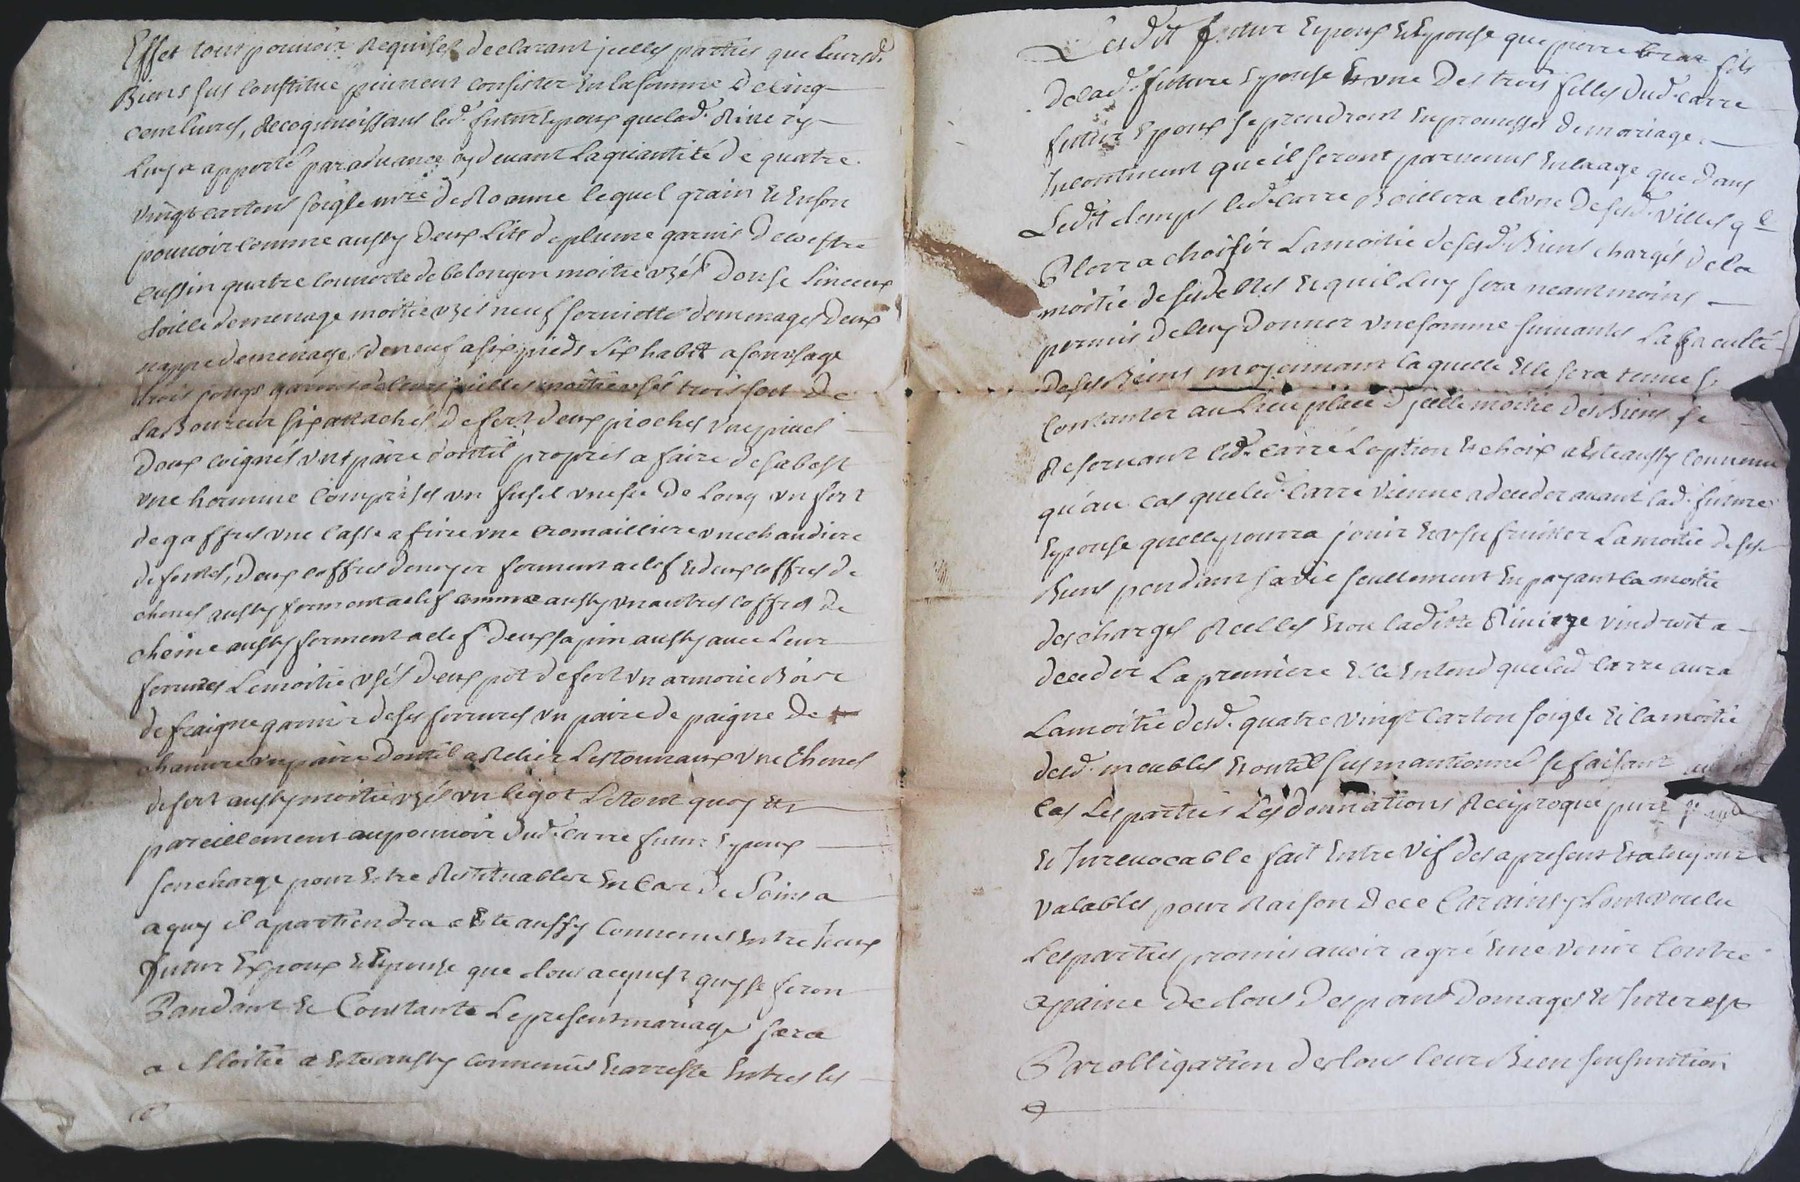 Effet tout pouvoir Requises declarant jcelles parties que leursd.
Biens sus constitué peuvent consister en la somme de cinq
cent livres, Recognoissant led. futur Epoux que lad. Rivery
luy a apporté par advance cy devant la quantité de quatre
vingt cartons soigle mre de Roanne lequel grain Et En son
pouvoir comme aussy deux lits de plume garnis de
cussin quatre couverte de belonger moitié uzés Douse Linceux
toille de menage moitié uzés neuf serviottes de menages deux
nappe de menage de neuf a six pieds six habit a son usage
trois garnis de leurs moitié usés trois fert de
Laboureur six attaches de fert deux pioches une
Deux coignés une paire d'outil propres a faire des sabost
une hommme comprises un fusil une sie de Long un fert
de gaffres une casse a frire une cromailliere une chaudiere
de fontes, deux coffres de noyer ferment a clef Et deux coffres de
chenes aussy ferment a clef comme aussy un autres coffres de
cheine aussy ferment a clef deux sapin aussy avec leur
ferrures Le moitié uzés deux pot de fert un armoire Boise
de fraigne garnie de ses ferrures un paire de paigne de
chanvre une paire d'outil a Relier Les tonneaux une Chenes
de fert aussy moitié uzés un bigot Le tout quoy Est
pareillement au pouvoir dud. Carre futur Epoux
sen charge pour Estre Restituables En Cas de
a quy il apartiendra a Esté aussy Convenus Entre Iceux
futur Epoux Et Epouse que tous acquest quy se feron
Pandant Et Constante Le present mariage sera
a Moitié a Esté aussy convenus Et arresté Entres les
Lesdit futur Epoux Et Epouse que pierre fils
de lad. future Epouse Et une des trois filles dud. Carre
futur Epoux se prendront En promesses de mariage
Incontinent qu'il seront parvenus En laage que dans
Ledit temps led. Carre Baillera a lune de sesd. filles qe
Plerra choisir La moitié de sesd. Biens chargés de la
moitié de ses debtes Et quil luy sera neantmoins
permis de luy donner une somme suivantes La faculté
de ses Biens moyennant la quelle Elle sera tenue se
Contanter au Lieu place d'jcelle moitié des Biens se
Reservant led. Carré L'option Et choix a Esté aussy Convenu
qu'au cas que led. Carre vienne a deceder avant lad. future
Epouse quelle pourra jouir Et usufruiter La moitié de ses
Biens pendant sa vie seullement En payant la moitié
des charges Reelles Et ou ladite Rivirye viendroit a
deceder La premiere Elle Entend que led. Carre aura
La moitié desd. quatre vingt Carton soigle Et la moitié
desd. meubles Et outil sus mantionné se faisant
Cas Les parties Les donnations Reciproque pure
Et Irrevocable fait Entre vif des a present Et a toujours
valables pour Raison de ce Car ainsy L'ont voulu
Les parties promis avoir agré Et ne venir Contre
a paine de tous despans Domages Et Interest
Par obligation de tous leur Bien